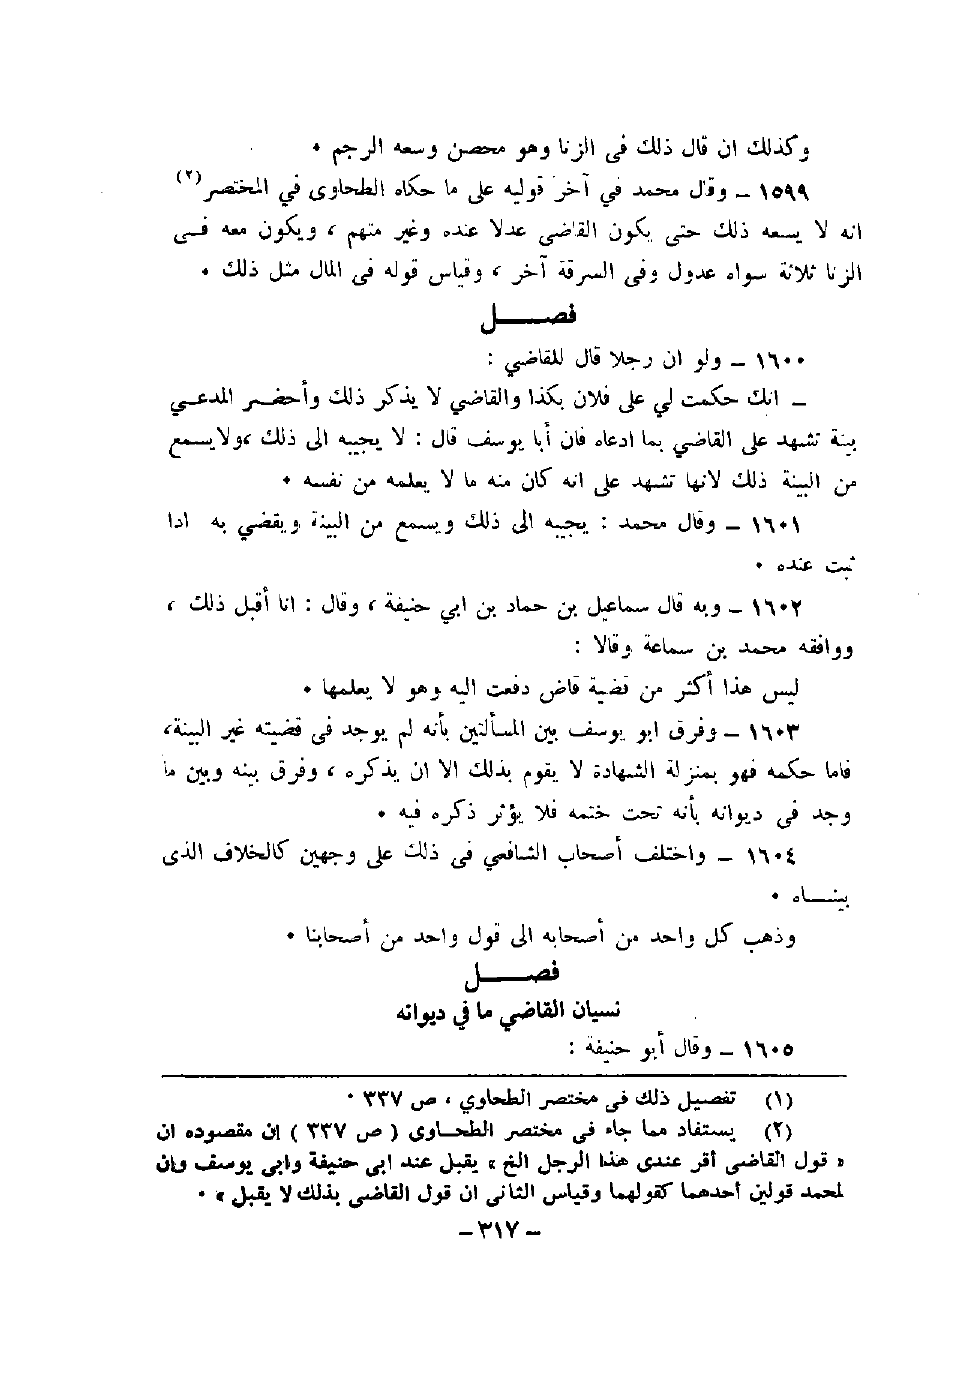 وكذلك ان قال ذلك فى الزنا وهو محصن وسعه الرجم ٠
١٥٩٩ ــ وقال محمد في آخر قوليه على ما حكاه الطحاوى في المختصر(٢)
انه لا يسعه ذلك حتى يكون القاضى عدلا عنده وغير متهم ، ويكون معه فــى
الزنا ثلاثة سواه عدول وفى السرقة آخر ، وقياس قوله فى المال مثل ذلك ٠
فصــــل
١٦٠٠ ــ ولو ان رجلا قال للقاضي :
ــ انك حكمت لي على فلان بكذا والقاضي لا يذكر ذلك وأحضــر المدعــي
بينة تشهد على القاضي بما ادعاه فان أبا يوسف قال : لا يجيبه الى ذلك ،ولايسمع
من البينة ذلك لانها تشهد على انه كان منه ما لا يعلمه من نفسه ٠
١٦٠١ ــ وقال محمد : يجيبه الى ذلك ويسمع من البينة ويقضي به اذا
ثبت عنده ٠
١٦٠٢ ــ وبه قال سماعيل بن حماد بن ابي حنيفة ، وقال : انا أقبل ذلك ،
ووافقه محمد بن سماعة وقالا :
ليس هذا أكثر من قضية قاض دفعت اليه وهو لا يعلمها ٠
١٦٠٣ ــ وفرق ابو يوسف بين المسألتين بأنه لم يوجد فى قضيته غير البينة،
فاما حكمه فهو بمنزلة الشهادة لا يقوم بذلك الا ان يذكره ، وفرق بينه وبين ما
وجد فى ديوانه بأنه تحت ختمه فلا يؤثر ذكره فيه ٠
١٦٠٤ ــ واختلف أصحاب الشافعي فى ذلك على وجهين كالخلاف الذى
بينــاه ٠
وذهب كل واحد من أصحابه الى قول واحد من أصحابنا ٠
فصــــل
نسيان القاضي ما في ديوانه
١٦٠٥ ــ وقال أبو حنيفة :
(١) تفصيل ذلك فى مختصر الطحاوي ، ص ٣٣٧ ٠
(٢) يستفاد مما جاء فى مختصر الطحــاوى ( ص ٣٣٧ ) ان مقصوده ان
« قول القاضى أقر عندى هذا الرجل الخ » يقبل عند ابى حنيفة وابى يوسف وان
لمحمد قولين أحدهما كقولهما وقياس الثانى ان قول القاضى بذلك لا يقبل » ٠
ــ ٣١٧ ــ